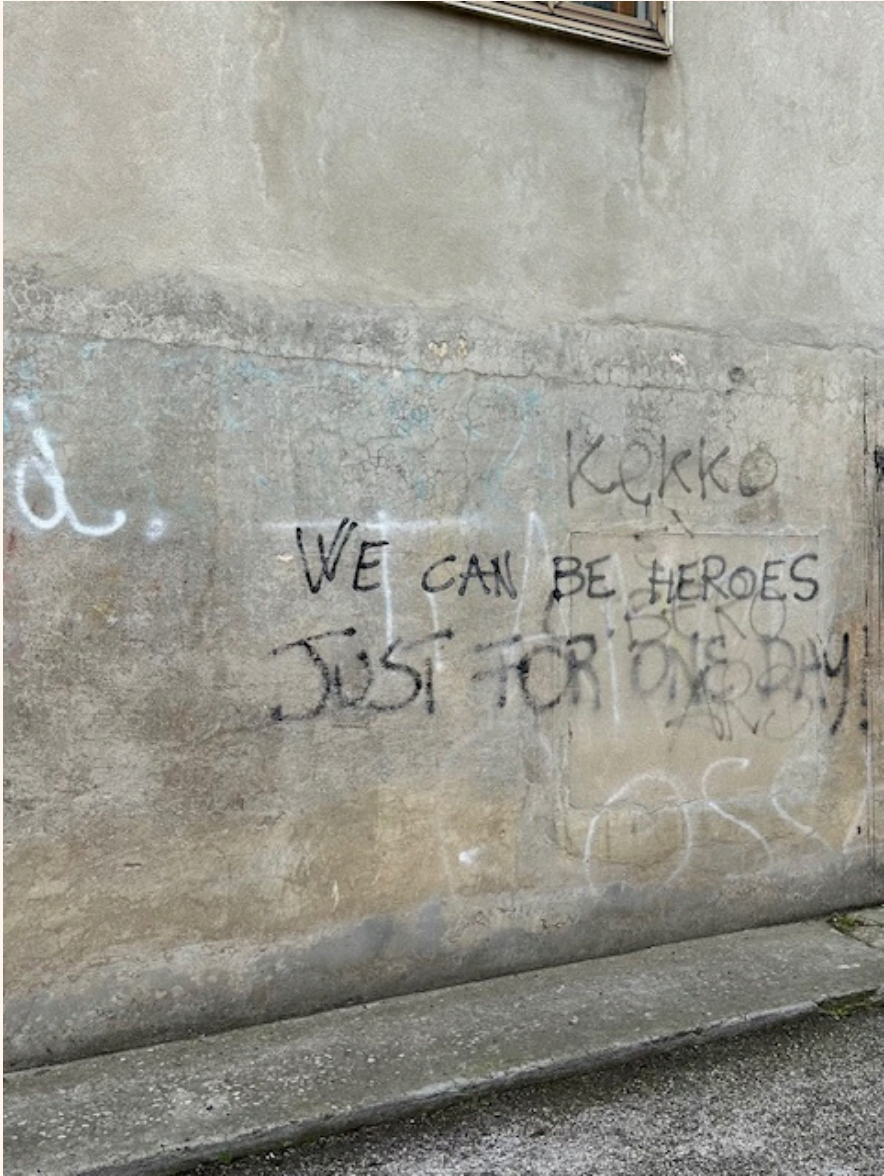 KEKKO
WE CAN BE HEROES
JUST FOR ONE DAY!